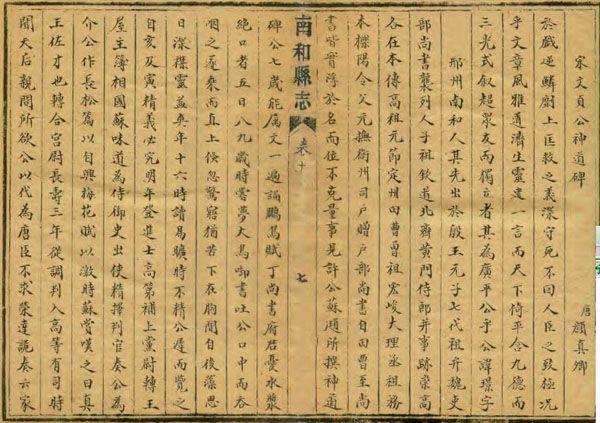 宋文貞公神道碑　唐　顏真卿
於戲逆鱗劘上匡救之義深守死不回人臣之致極況
乎文章風雅道濟生靈建一言而天下倚平含九德而
三光式敘超眾友而獨立者其為廣平公乎公諱璟字
邢州南和人其先出於殷王元子七代祖弁魏吏
部尚書襲列人子祖欽道北齊黃門侍郎并事跡崇高
各在本傳高祖元節定州田曹曾祖宏峻大理丞祖務
本櫟陽令父元撫衛州司戶贈戶部尚書自田曹至尚
書皆實浮於名而位不充量事見許公蘇頲所撰神道
南和縣志　卷十　七
碑公七歲能屬文一遍誦鵩鳥賦丁尚書府君憂水漿
絕口者五日八九歲時嘗夢大鳥啣書吐公口中而吞
咽之遂乘而直上倏忽驚寤猶若下在胸間自後藻思
日深襟靈益爽年十六時請易曠時不精公遲而覽之
自亥及寅精義必究明年登進士高第補上黨尉轉王
屋主簿相國蘇味道為侍御史出使精擇判官奏公為
介公作長松篇以自興梅花賦以激時蘇嘗嘆之曰真
王佐才也轉合宮尉長壽三年從調判入高等有司時
聞天后親問所欲公以代為唐臣不求榮達詭奏云家